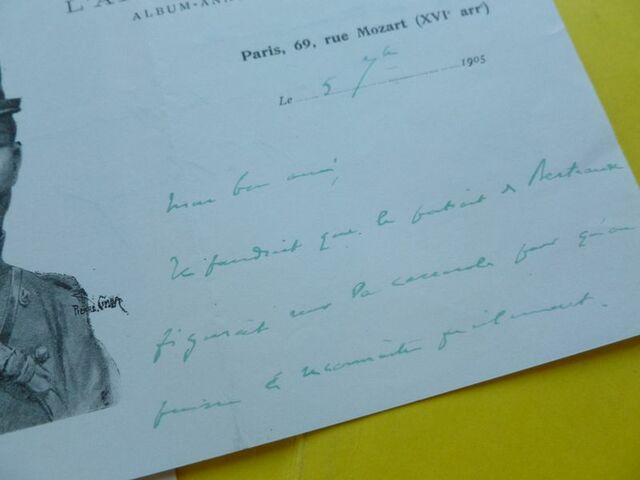 L'A
ALBUM-ANN
Paris, 69, rue Mozart (XVIe arrt)
Le 5 7bre 1905
Mon bon ami,
Il faudrait que le portrait de Berteaux
figurât sur la couverture pour qu'on
puisse le reconnaître